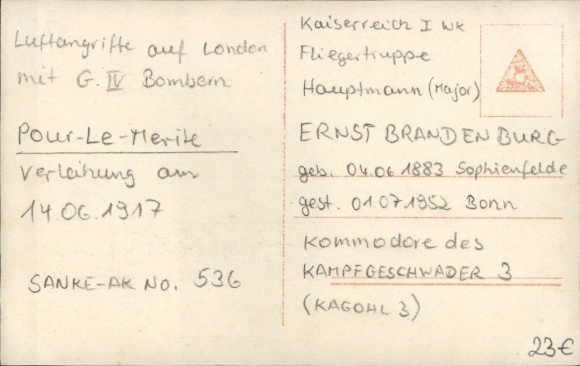 Luftangriffe auf London
mit G. IV Bombern
Pour-Le-Merite
Verleihung am
14.06.1917
SANKE-AK NO. 536
Kaiserreich I WK
Fliegertruppe
Hauptmann (Major)
ERNST BRANDENBURG
geb. 04.06.1883 Sophienfelde
gest. 01.07.1952 Bonn
Kommodore des
KAMPFGESCHWADER 3
(KAGOHL 3)
23€